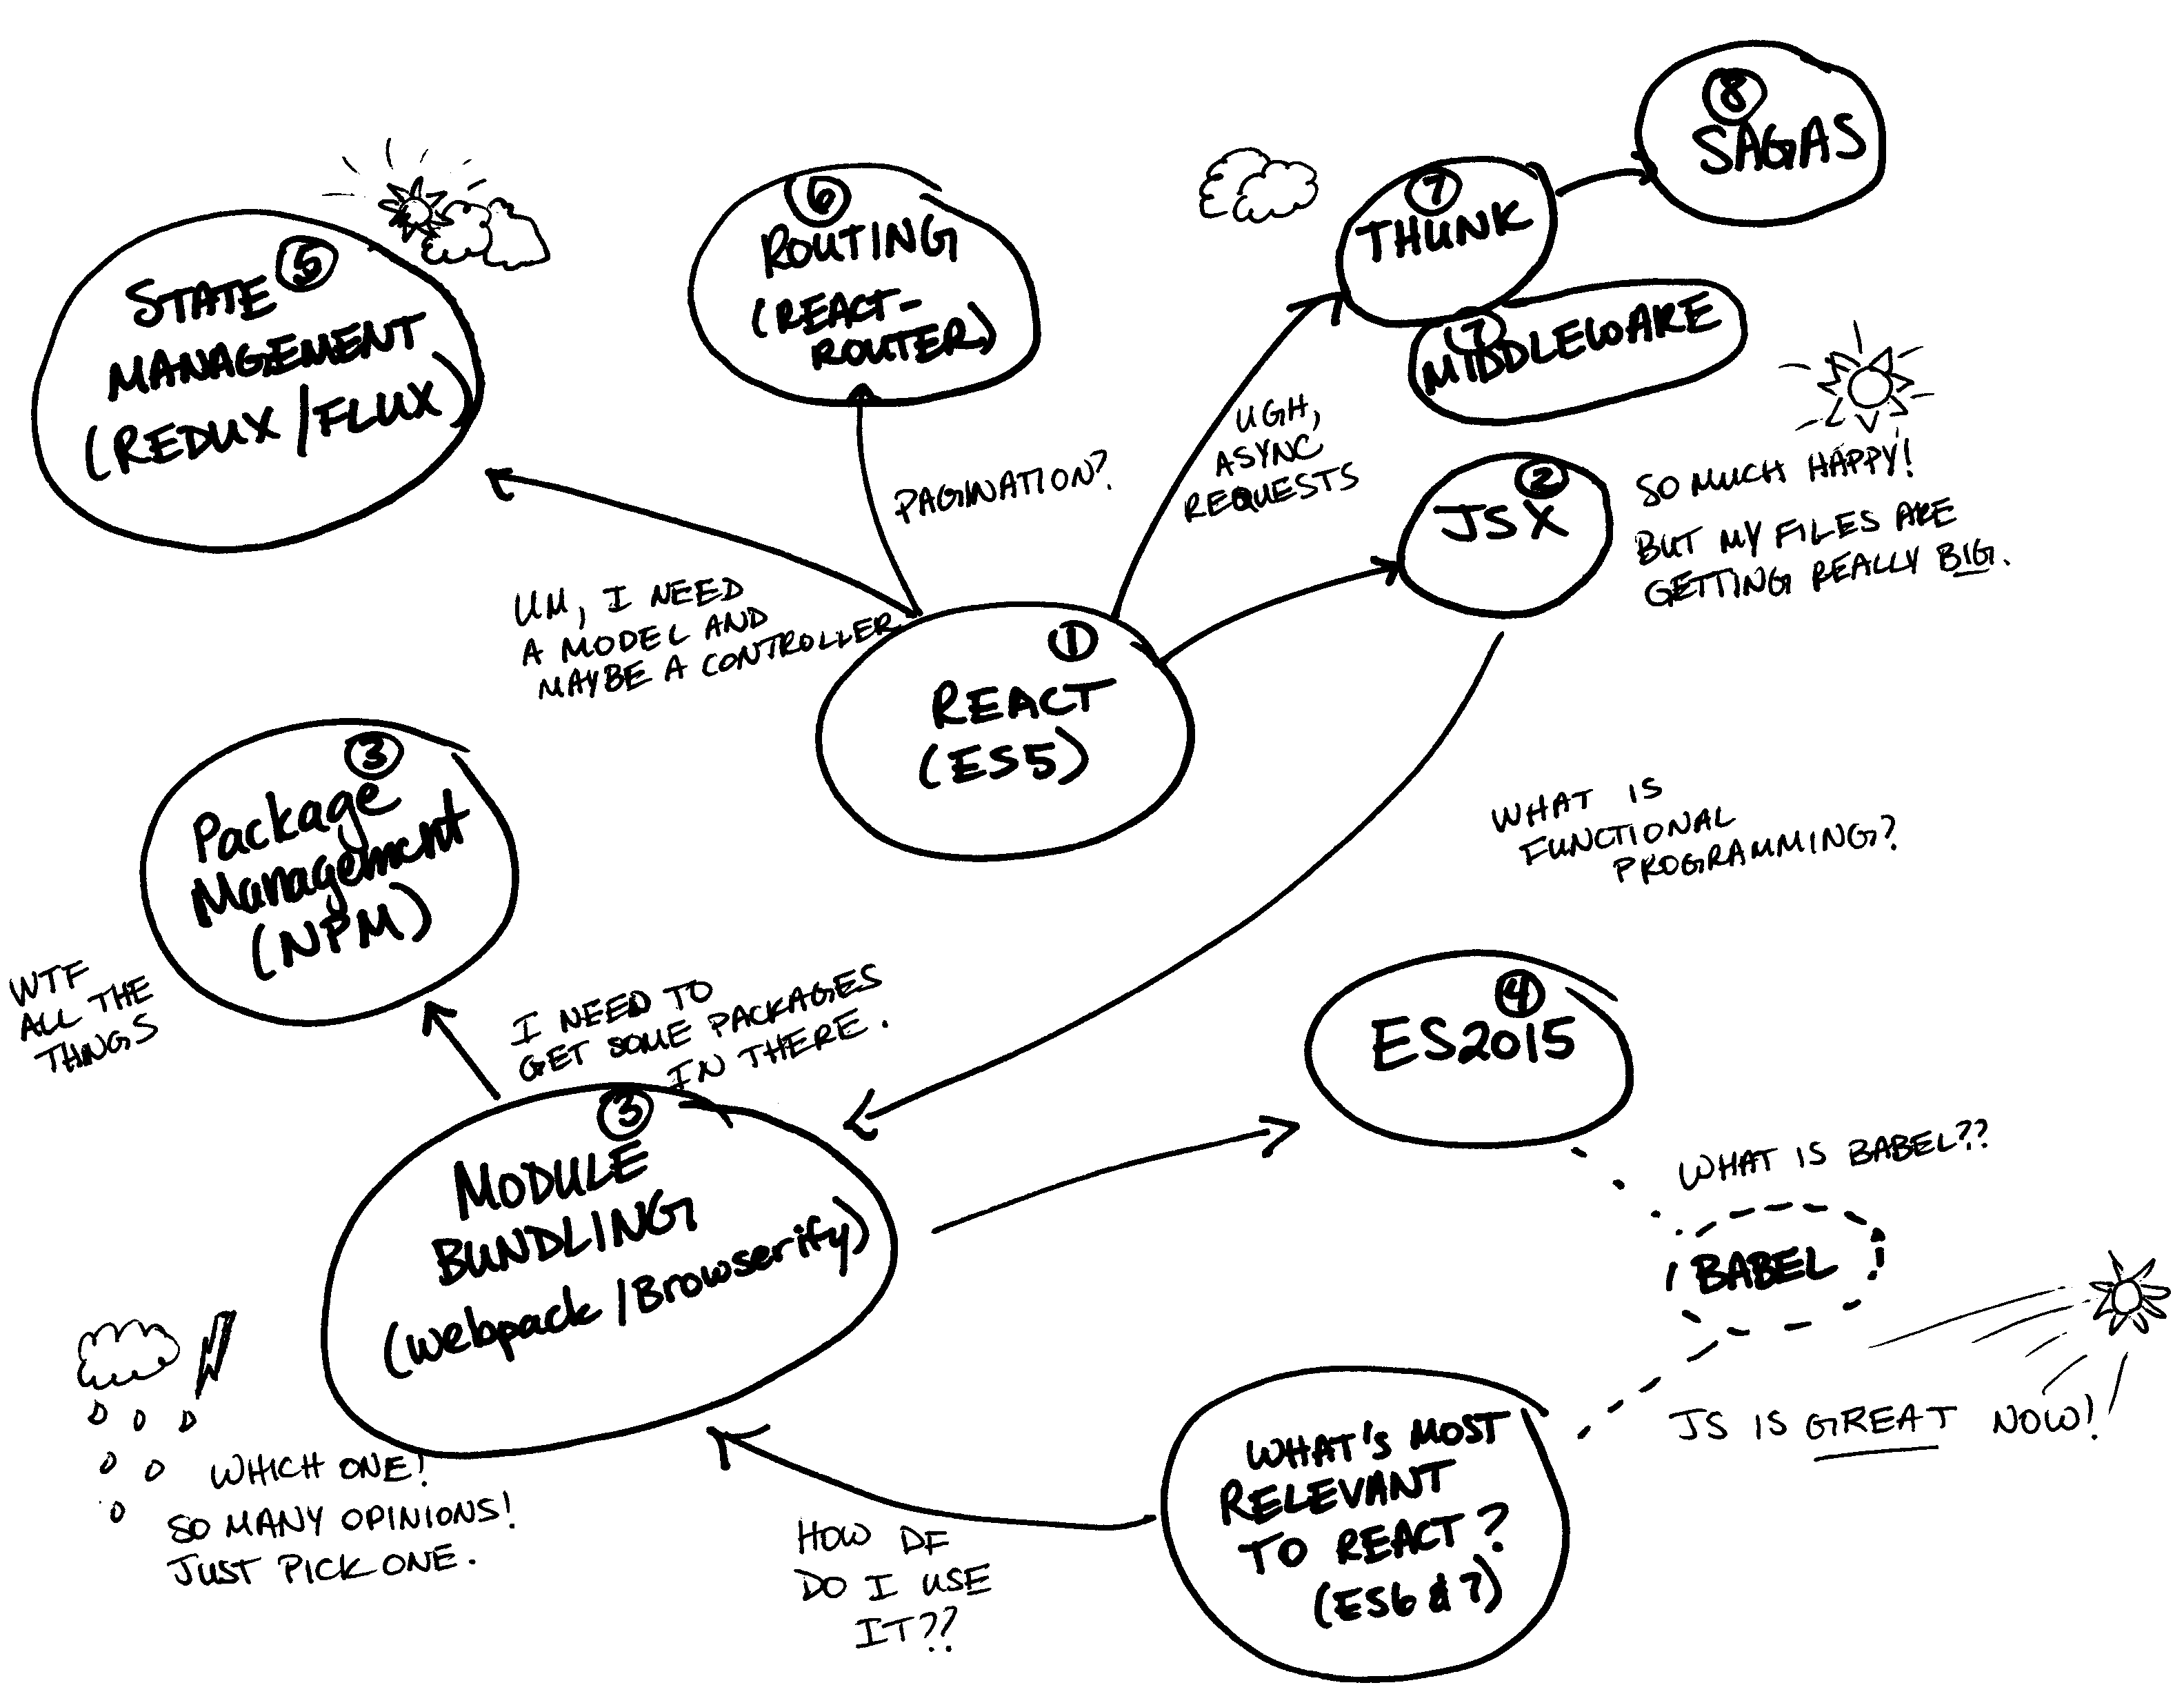 8
SAGAS
7
THUNK
7
MIDDLEWARE
6
ROUTING
(REACT-
ROUTER)
5
STATE
MANAGEMENT
(REDUX/FLUX)
UGH,
ASYNC
REQUESTS
PAGINATION?
2
JSX
SO MUCH HAPPY!
BUT MY FILES ARE
GETTING REALLY BIG.
UM, I NEED
A MODEL AND
MAYBE A CONTROLLER
1
REACT
(ES5)
3
Package
Management
(NPM)
WTF
ALL THE
THINGS
WHAT IS
FUNCTIONAL
PROGRAMMING?
I NEED TO
GET SOME PACKAGES
IN THERE.
4
ES2015
3
MODULE
BUNDLING
(webpack/Browserify)
WHAT IS BABEL??
BABEL
JS IS GREAT NOW!
WHICH ONE!
SO MANY OPINIONS!
JUST PICK ONE.
HOW DF
DO I USE
IT??
WHAT'S MOST
RELEVANT
TO REACT?
(ES6 & 7)